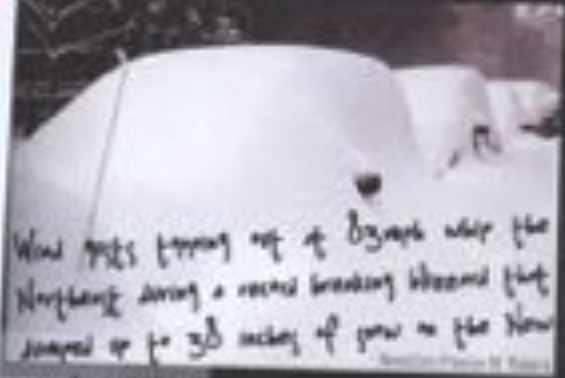 Wind gusts topping out at 83mph whip the
Northeast during a record breaking blizzard that
dumped up to 38 inches of snow on the New